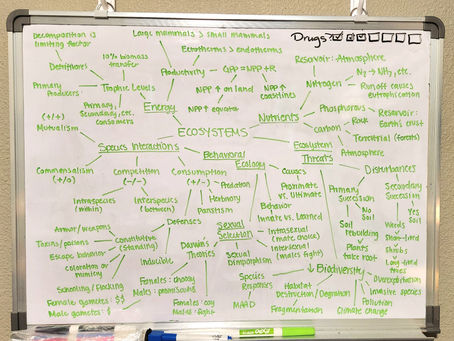 Decomposition is
limiting factor
Large mammals > small mammals
Ectotherms > endotherms
Drugs
Reservoir: Atmosphere
Detritivores
10% biomass
transfer
Productivity
GPP = NPP + R
Nitrogen
N₂ → NH₃, etc.
Primary
Producers
Trophic Levels
NPP ↑ on land
NPP ↑
coastlines
Runoff causes
eutrophication
Primary,
Secondary, etc.
consumers
Energy
NPP ↑ equator
Nutrients
Phosphorous
Rock
Reservoir:
Earth's crust
(+/+)
Mutualism
ECOSYSTEMS
Carbon
Terrestrial (forests)
Atmosphere
Species Interactions
Behavioral
Ecology
Ecosystem
Threats
Disturbances
Commensalism
(+/0)
Competition
(-/-)
Consumption
(+/-)
Predation
Herbivory
Parasitism
Causes
Proximate
vs. Ultimate
Primary
Succession
No
Soil
Soil
rebuilding
Plants
take root
Secondary
Succession
Yes
Soil
Weeds
Short-lived
shrubs
Long-lived
trees
Intraspecies
(within)
Interspecies
(between)
Behavior
Innate vs. Learned
Armor/weapons
Toxins/poisons
Escape behavior
coloration or
mimicry
Schooling/flocking
Constitutive
(standing)
Defenses
Inducible
Sexual
Selection
Intrasexual
(mate choice)
Intersexual
(males fight)
Darwin's
Theories
Sexual
Dimorphism
↓ Biodiversity
Female gametes: $$
Male gametes: $
Females: choosy
Males: promiscuous
Females: coy
Males: fight
Species
Responses
MAAD
Habitat
Destruction/Degration
Fragmentation
Climate change
Pollution
Invasive species
Overexploitation
EXPO